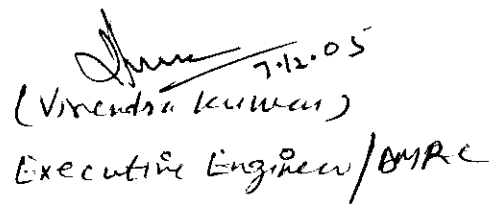 7.12.05
(Virendra Kumar)
Executive Engineer/DMRC